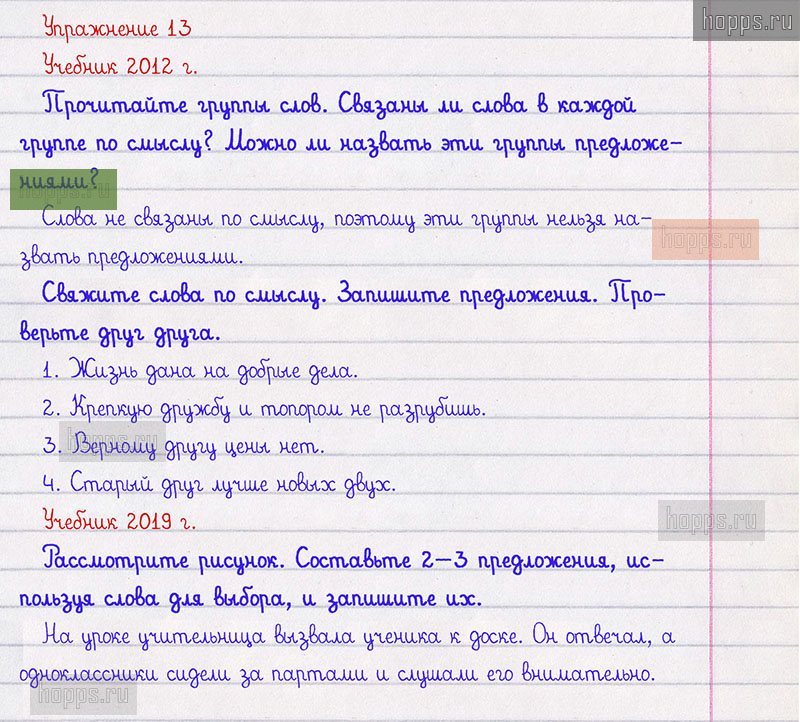 hopps.ru
Упражнение 13
Учебник 2012 г.
Прочитайте группы слов. Связаны ли слова в каждой
группе по смыслу? Можно ли назвать эти группы предложе-
ниями?
hopps.ru
Слова не связаны по смыслу, поэтому эти группы нельзя на-
hopps.ru
звать предложениями.
Свяжите слова по смыслу. Запишите предложения. Про-
верьте друг друга.
1. Жизнь дана на добрые дела.
2. Крепкую дружбу и топором не разрубишь.
hopps.ru
3. Верному другу цены нет.
4. Старый друг лучше новых двух.
Учебник 2019 г.
hopps.ru
Рассмотрите рисунок. Составьте 2–3 предложения, ис-
пользуя слова для выбора, и запишите их.
На уроке учительница вызвала ученика к доске. Он отвечал, а
одноклассники сидели за партами и слушали его внимательно.
hopps.ru